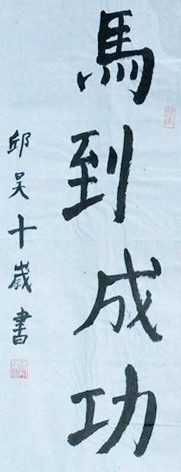 馬到成功
邱吴十歲書